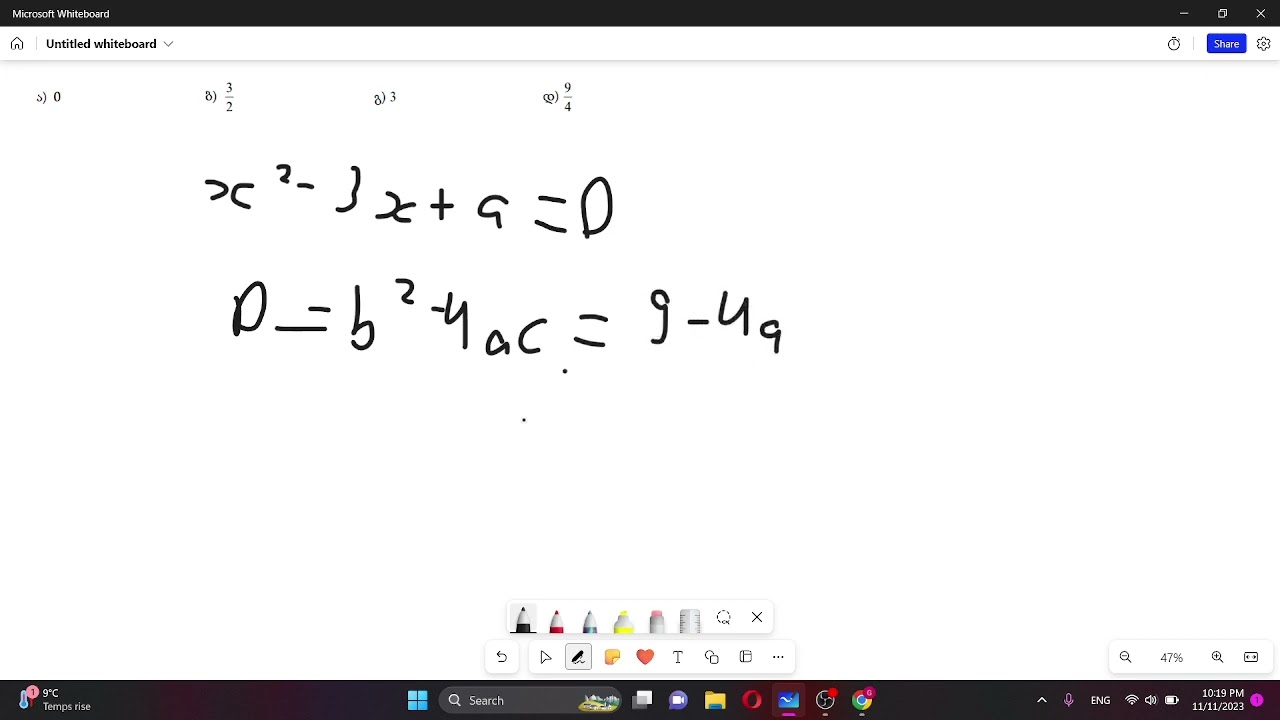 Microsoft Whiteboard
Untitled whiteboard
Share
ა) 0 ბ) 3/2 გ) 3 დ) 9/4
x² - 3x + a = 0
D = b² - 4ac = 9 - 4a
47%
1
9°C
Temps rise
Search
G
ENG
10:19 PM
11/11/2023
1